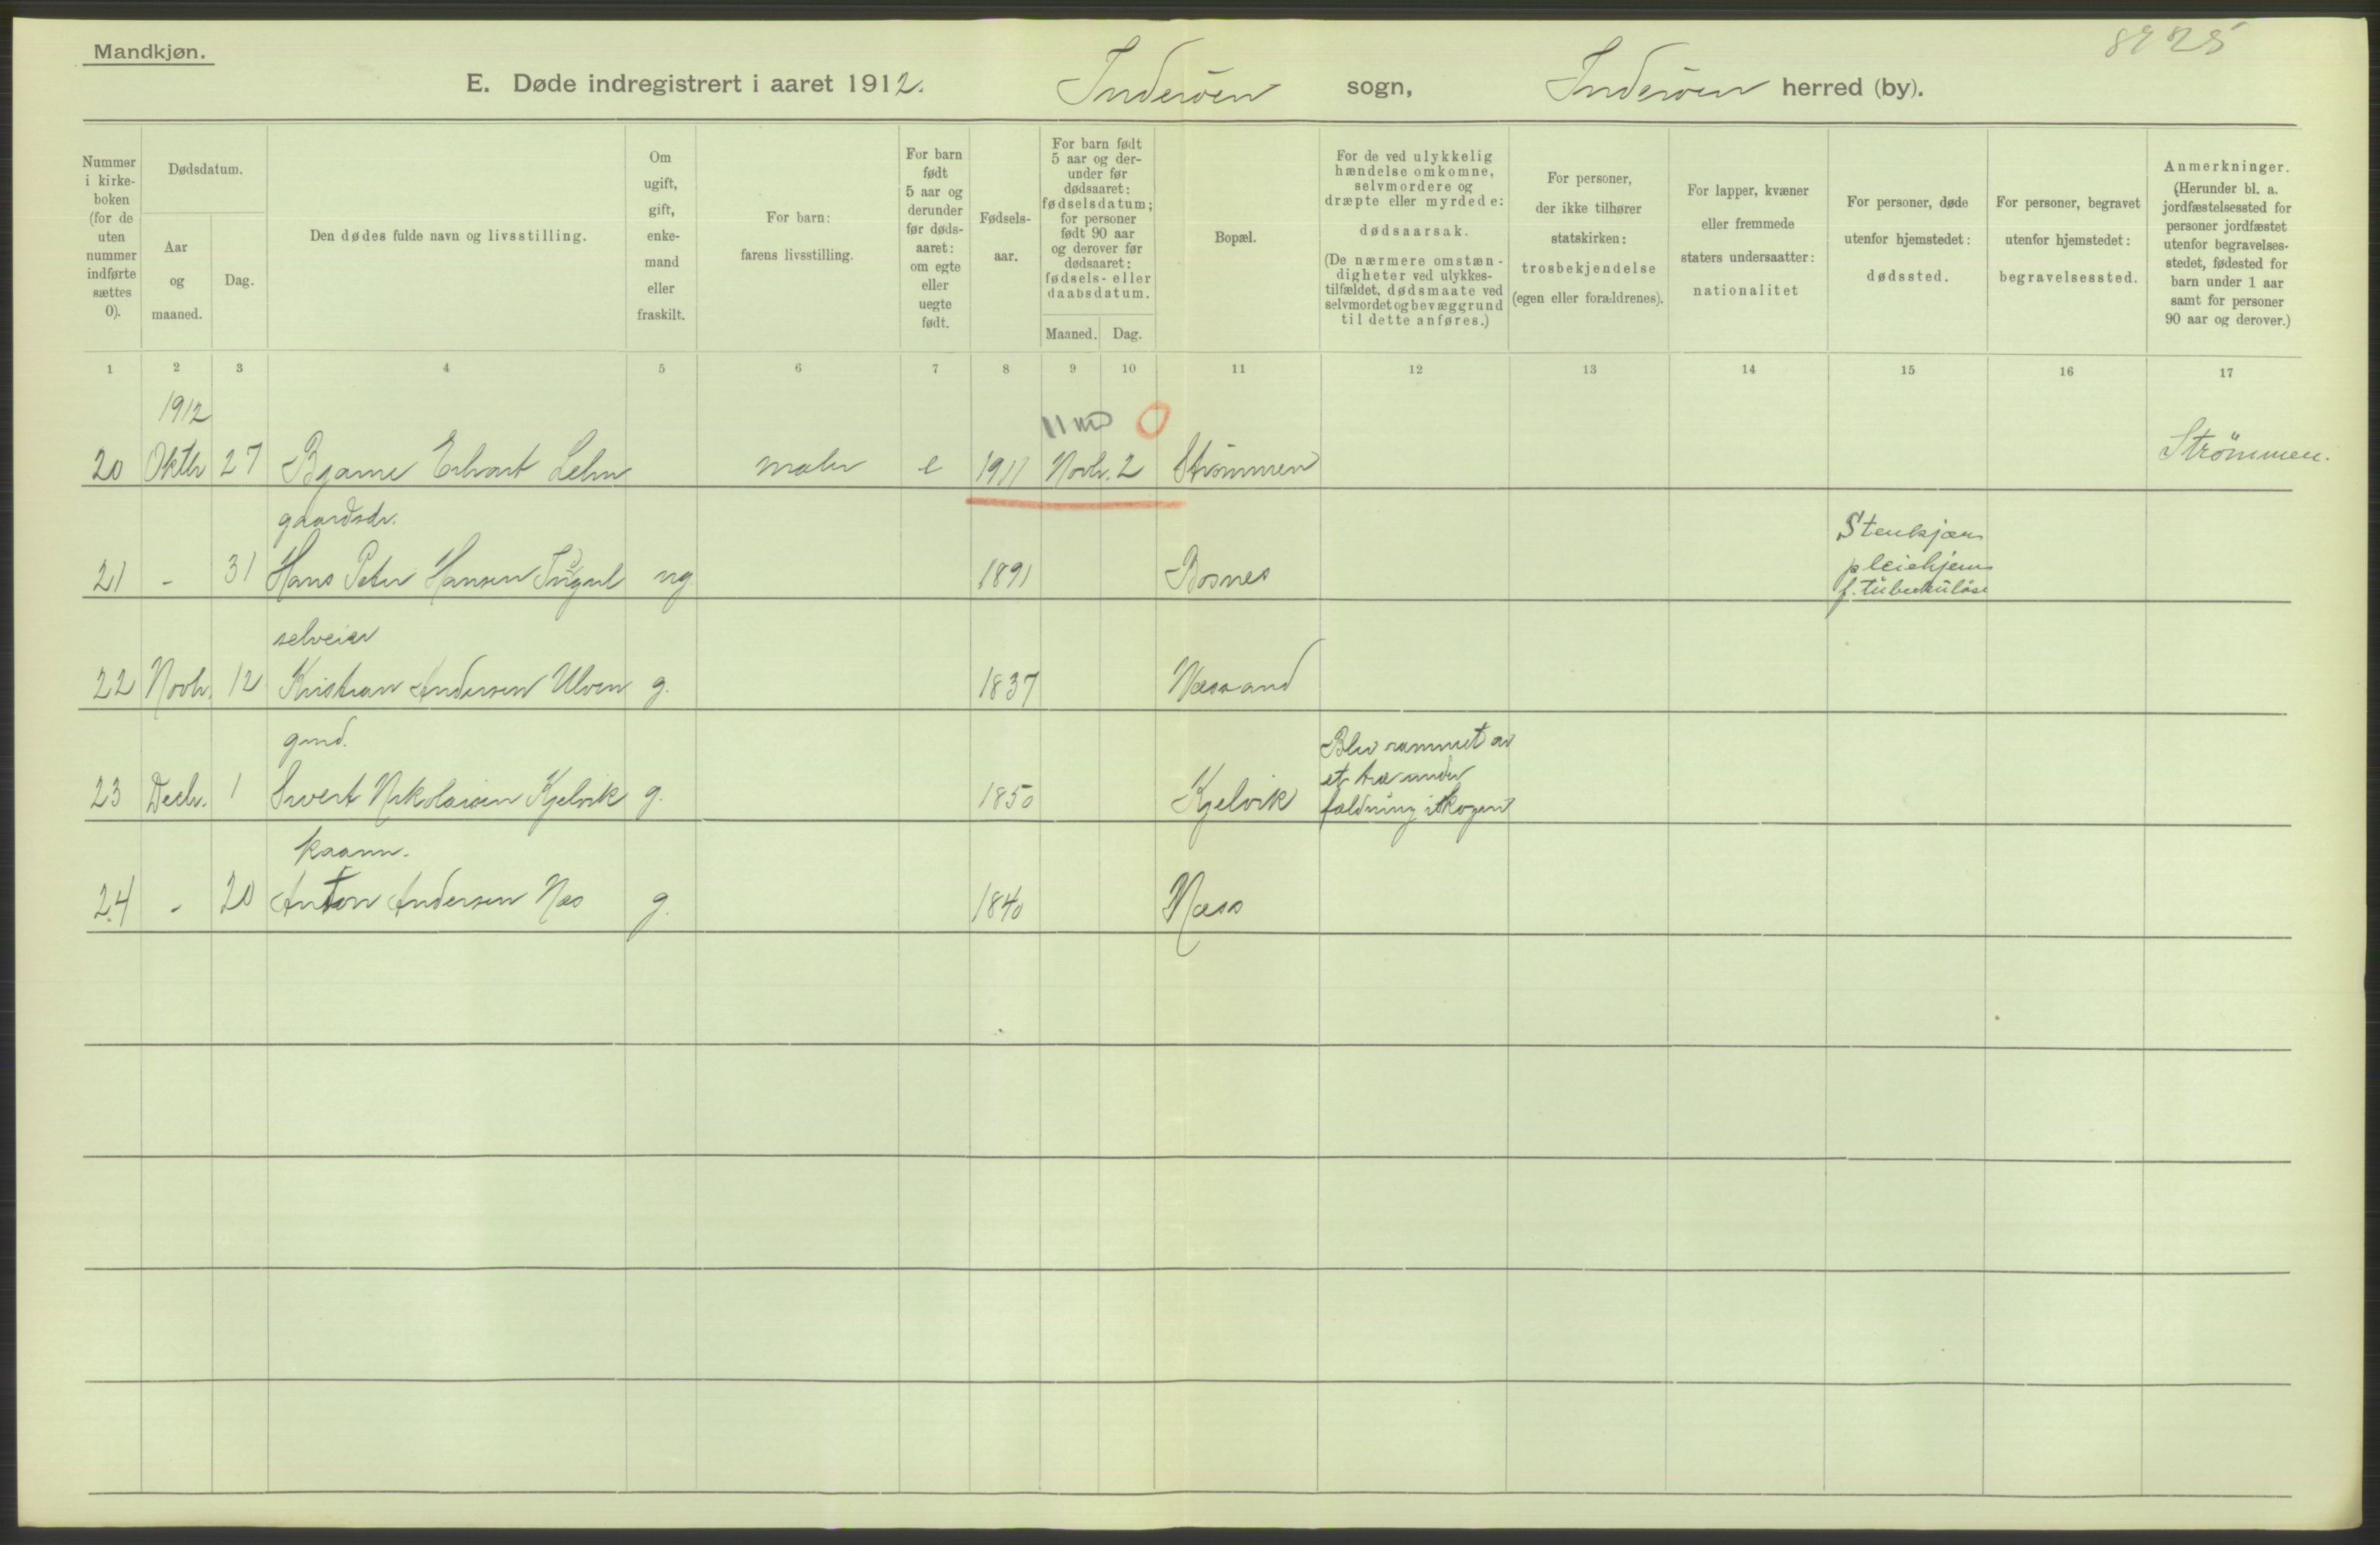 Mandkjøn.
8925
E. Døde indregistrert i aaret 1912. Inderöen sogn, Inderöen herred (by).
Nummer i kirkeboken (for de uten nummer indførte sættes 0).
Dødsdatum.
Aar og maaned.
Dag.
Den dødes fulde navn og livsstilling.
Om ugift, gift, enkemand eller fraskilt.
For barn: farens livsstilling.
For barn født 5 aar og derunder før dødsaaret: om egte eller uegte født.
Fødselsaar.
For barn født 5 aar og derunder før dødsaaret: fødselsdatum; for personer født 90 aar og derover før dødsaaret: fødsels- eller daabsdatum.
Maaned. Dag.
Bopæl.
For de ved ulykkelig hændelse omkomne, selvmordere og dræpte eller myrdede: dødsaarsak. (De nærmere omstændigheter ved ulykkestilfældet, dødsmaate ved selvmordet og bevæggrund til dette anføres.)
For personer, der ikke tilhører statskirken: trosbekjendelse (egen eller forældrenes).
For lapper, kvæner eller fremmede staters undersaatter: nationalitet
For personer, døde utenfor hjemstedet: dødssted.
For personer, begravet utenfor hjemstedet: begravelsessted.
Anmerkninger. (Herunder bl. a. jordfæstelsessted for personer jordfæstet utenfor begravelsesstedet, fødested for barn under 1 aar samt for personer 90 aar og derover.)
1 2 3 4 5 6 7 8 9 10 11 12 13 14 15 16 17
1912
11 md 0
20 Oktbr 27 Bjarne Erhart Lehn maler e 1911 Novbr. 2 Strömmen Strömmen.
gaardsdr.
21 - 31 Hans Peter Hansen ug. 1891 Bosnes Stenkjær pleiehjem f. tuberkuløse
selveier
22 Novbr. 12 Kristian Andersen Ulven g. 1837 Næssand
gmd.
23 Decbr. 1 Sivert Nikolaisen Kjelvik g. 1850 Kjelvik Blev rammet av et træ under fældning i skogen
kaarm.
24 - 20 Anton Andersen Næs g. 1840 Næss